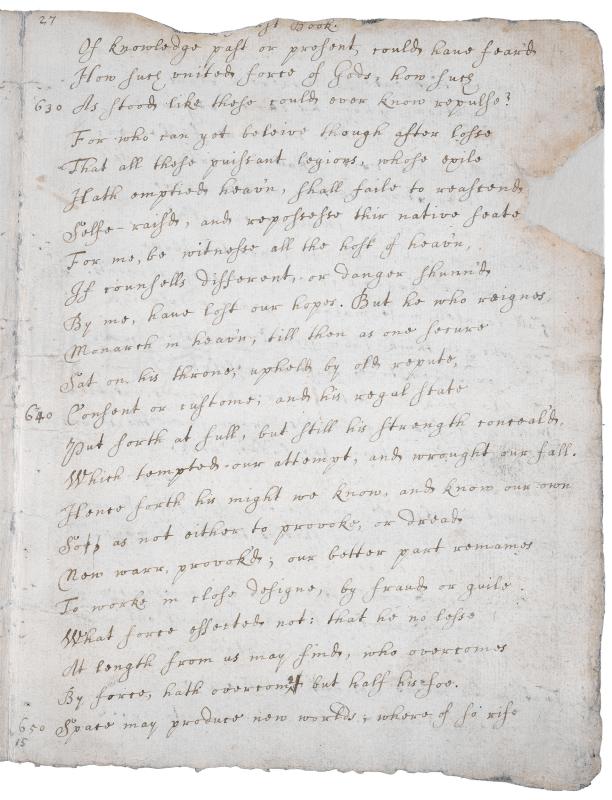 27
st Book.
Of knowledge past or present, could have fear'd
How such united force of Gods, how such
630 As stood like these could ever know repulse?
For who can yet beleive though after losse
That all these puissant legions, whose exile
Hath emptied heav'n, shall faile to reascend
Selfe-rais'd, and repossesse thir native seate
For me, be witnesse all the host of heav'n,
If counsells different, or danger shunn'd
By me, have lost our hopes. But he who reignes
Monarch in heav'n, till then as one secure
Sat on his throne, upheld by old repute,
640 Consent or custome; and his regal state
Put forth at full, but still his strength conceal'd,
Which tempted our attempt, and wrought our fall.
Hence forth his might we know, and know our own
So as not either to provoke, or dread
New warr, provok'd; our better part remaines
To worke in close designe, by fraud or guile
What force effected not: that he no lesse
At length from us may find, who overcomes
By force, hath overcome but half his foe.
650 Space may produce new worlds; where of so rife
15